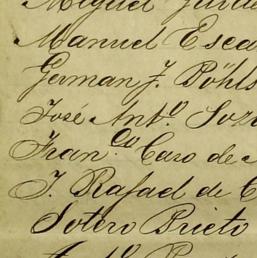 Miguel
Manuel Esca
German F. Pöhls
José Ant.º Soz
Fran.co Caro de
J. Rafael de C
Sotero Prieto